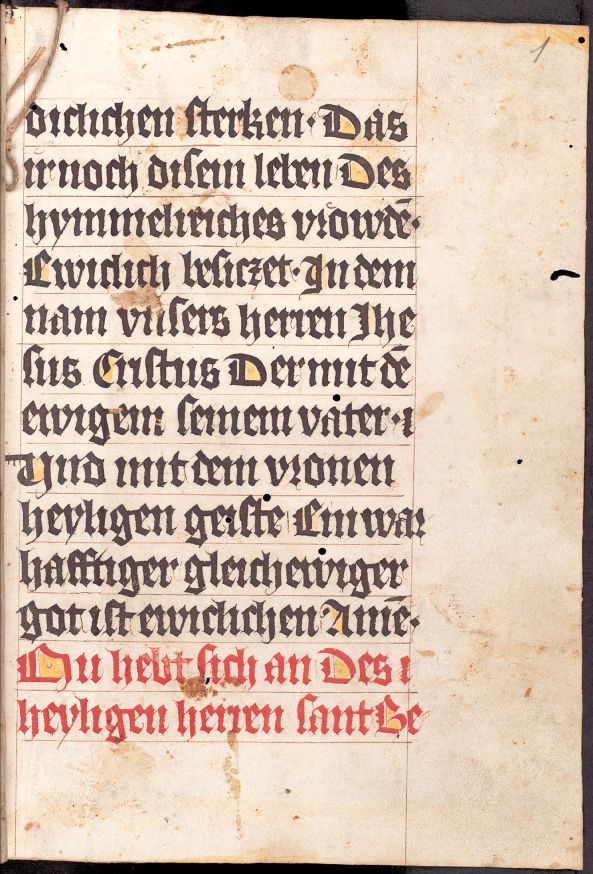 1
diclichen sterken· Das
ir noch disem leben Des
hymmelreiches vrowdē·
Ewiclich besiczet· In dem
nam vnsers herren Jhe
sus Cristus Der mit dē
ewigem seinem vater· ı
Vnd mit dem vronen
heyligen geiste Ein war
hafftiger gleichewiger
got ist ewiclichen Amē·
Hu hebt sich an Des ı
heyligen herren sant Be